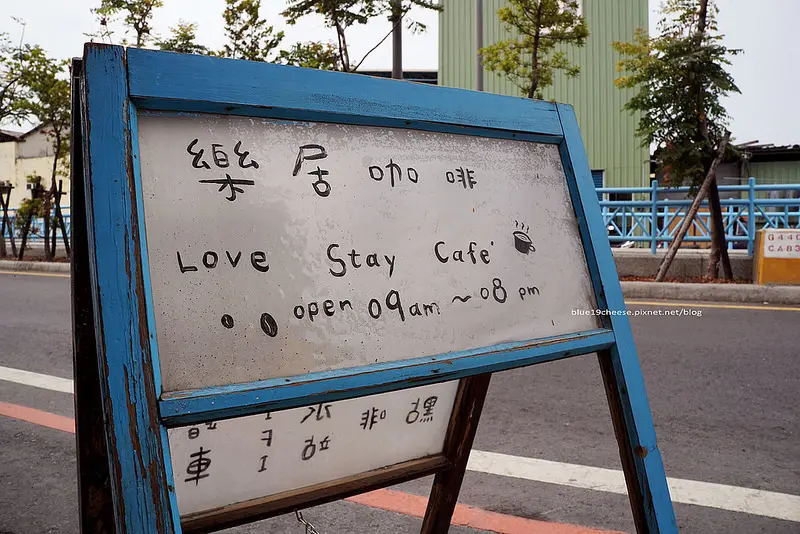 樂居咖啡
Love Stay Cafe'
open 09am ~ 08 pm
blue19cheese.pixnet.net/blog
G440
CA83
車